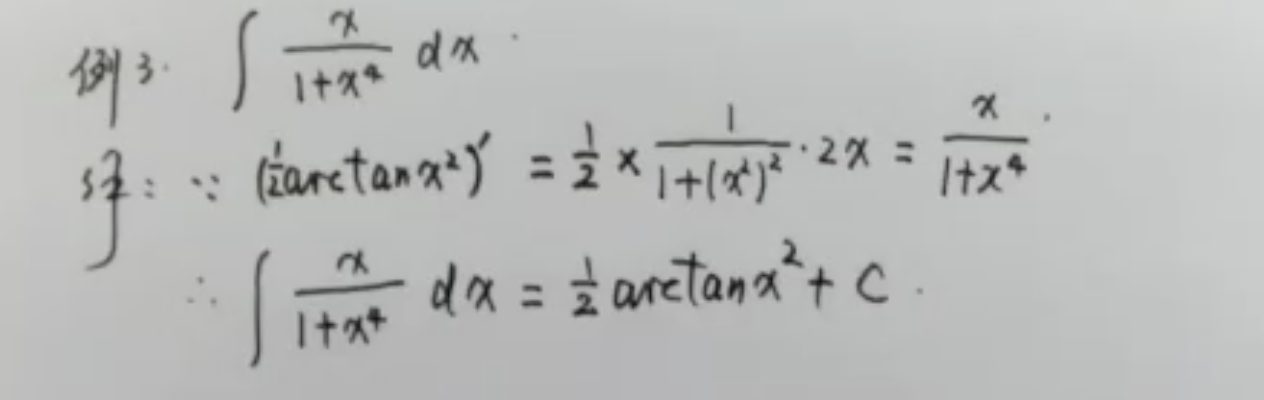 例3. ∫ x/(1+x⁴) dx.
解: ∵ (½arctanx²)′ = ½ × 1/(1+(x²)²) · 2x = x/(1+x⁴).
∴ ∫ x/(1+x⁴) dx = ½ arctanx² + C.